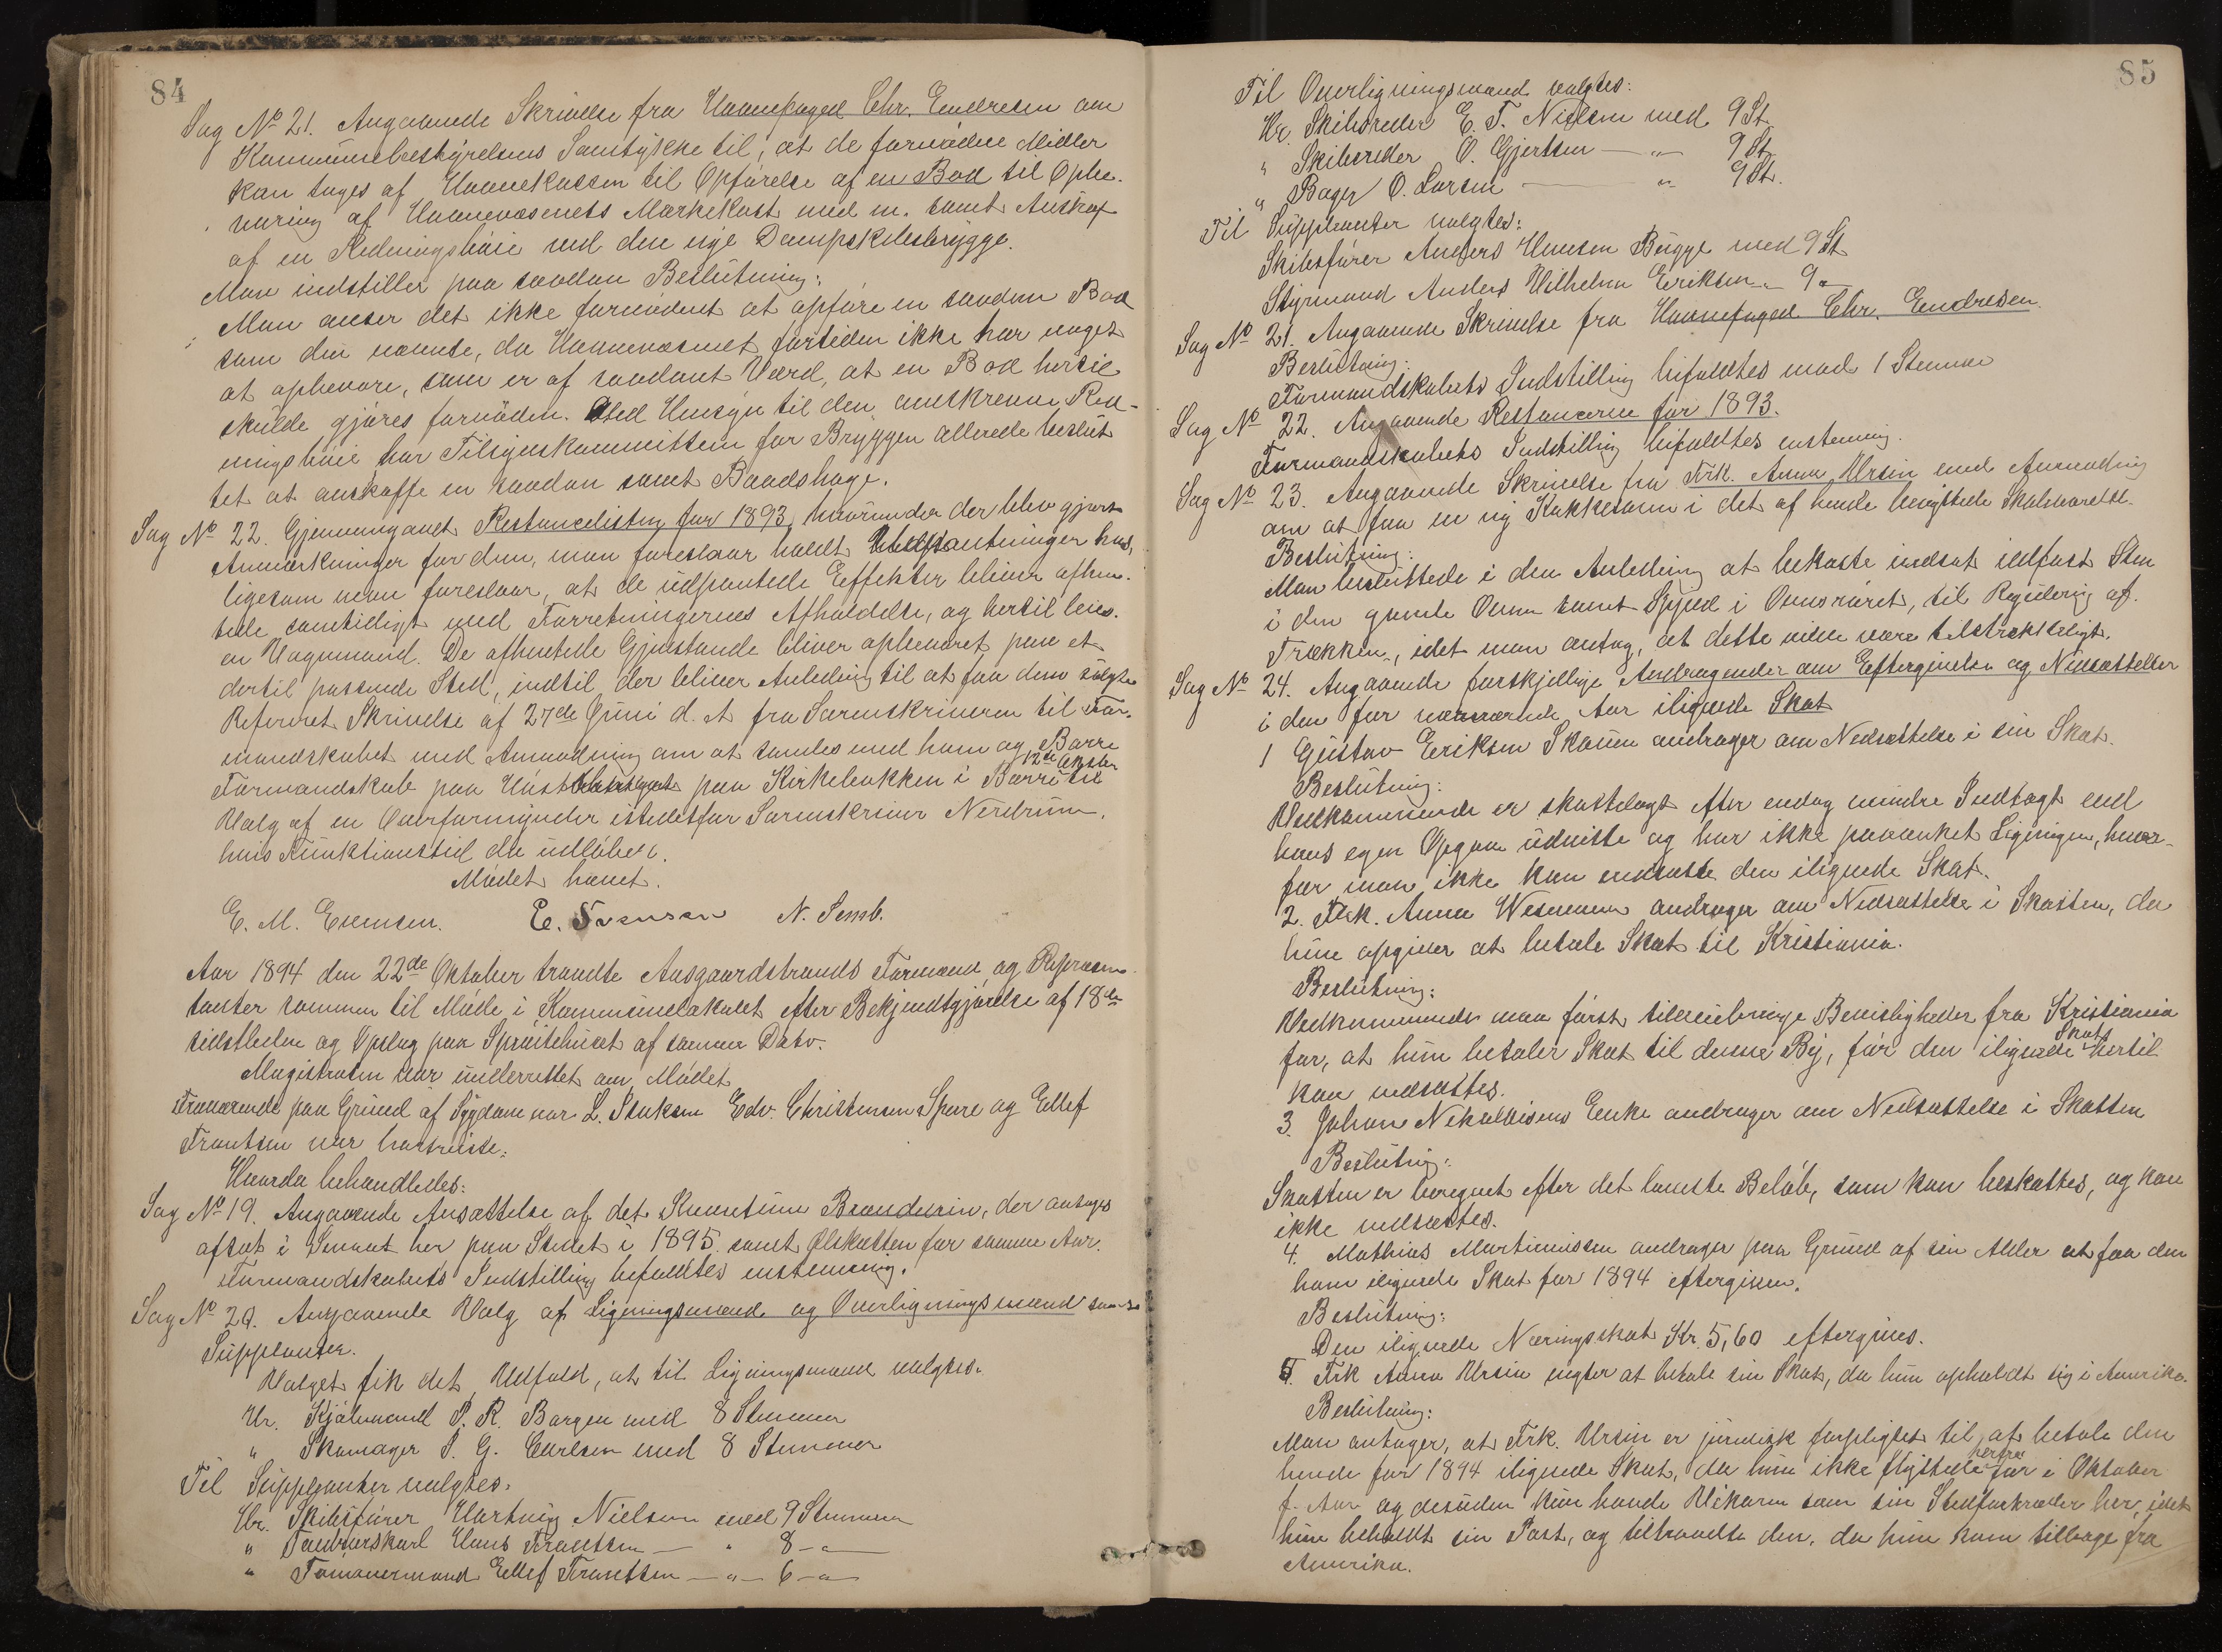 84
Sag No 21. Angaaende Skrivelse fra Havnefoged Chr. Endresen om
Kommunebestyrelsens Samtykke til, at de fornødne Midler
kan tages af Havnekassen til Opførelse af en Bod til Opbe-
varing af Havnevæsenets Mærkekost med m. samt Anskaf.
af en Redningsbøie ved den nye Dampskibsbrygge.
Man indstiller paa saadan Beslutning:
Man anser det ikke fornødent at opføre en saadan Bod
som den nævnte, da Havnevæsenet fortiden ikke har noget
at opbevare, som er af saadant Værd, at en Bod hertil
skulde gjøres fornøden. Med Hensyn til den anskrevne Red-
ningsbøie har Tilsynskommitteen for Bryggen allerede beslut
tet at anskaffe en saadan samt Baadshage.
Sag No 22. Gjennemgaaet Restancelisten for 1893, hvorunder der blev gjort
Anmærkninger for dem, man foreslaar holdt Udpantninger hos,
ligesom man foreslaar, at de udpantede Effekter bliver afhen-
tede samtidigt med Forretningernes Afholdelse, og hertil leies
en Vognmand. De afhentede Gjenstande bliver opbevaret paa et
dertil passende Sted, indtil der bliver Anledning til at faa dem solgte
Refereret Skrivelse af 27de Juni d. A fra Sorenskriveren til For-
mandskabet med Anmodning om at samles med ham og Borre
12te Oktober
Formandskab paa Høstthinget paa Kirkebakken i Borre til
Valg af en Overformynder istedetfor Sorenskriver Nerdrum,
hvis Funktionstid da udløber.
Mødet hævet.
E. M. Evensen. E. Svensen N. Semb.
Aar 1894 den 22de Oktober traadte Aasgaardstrands Formænd og Repræsen-
tanter sammen til Møde i Kommunelokalet efter Bekjendtgjørelse af 18de
sidstleden og Opslag paa Sprøitehuset af samme Dato.
Magistraten var underrettet om Mødet
Fraværende paa Grund af Sygdom var L. Staksen Edv. Christensen Spure og Ellef
Frantsen var bortreiste.
Hvorda behandledes:
Sag No 19. Angaaende Ansættelse af det Kvantum Brændevin, der antages
afsat i Smaat her paa Stedet i 1895 samt Ølskatten for samme Aar.
Formandskabets Indstilling bifaldtes enstemmig.
Sag No 20. Angaaende Valg af Ligningsmænd og Overligningsmænd samt
Supplanter.
Valget fik det Udfald, at til Ligningsmænd valgtes.
Hr. Kjøbmand P. R. Borgen med 8 Stemmer
" Skomager P. G. Carlsen med 8 Stemmer
Til Supplanter valgtes.
Hr. Skibsfører Hartvig Nielsen med 9 Stemmer
" Hans Frantsen — " 8 — " —
" Tømmermand Ellef Frantsen — " — 6 — " —
85
Til Overligningsmænd valgtes:
Hr. Skibsreder E. T. Nielsen med 9 St.
" Skibsreder O. Gjertsen — " — 9 St.
" Bager O. Larsen — " 9 St.
Til Supplanter valgtes:
Skibsfører Anders Hansen Bugge med 9 St
Styrmand Anders Wilhelm Eriksen " 9 "
Sag No 21. Angaaende Skrivelse fra Havnefoged Chr. Endresen.
Beslutning:
Formandskabets Indstilling bifaldtes mod 1 Stemme
Sag No 22. Angaaende Restancerne for 1893.
Formandskabets Indstilling bifaldtes enstemmig.
Sag No 23. Angaaende Skrivelse fra Frk. Anna Ursin med Anmodning
om at faa en ny Kakkelovn i det af hende benyttede Skoleværelse.
Beslutning:
Man besluttede i den Anledning at bekoste indsat ildfast Sten
i den gamle Ovn samt Spjeld i Ovnsrøret, til Regulering af
Trækken, idet man antog, at dette vilde være tilstrækkeligt.
Sag No 24. Angaaende forskjellige Andragender om Eftergivelse og Nedsættelse
i den for nærværende Aar ilignede Skat
1 Gustav Eriksen Skauen andrager om Nedsættelse i sin Skat.
Beslutning:
Vedkommende er skattelagt efter endog mindre Indtægt end
hans egen Opgave udviste og har ikke paaanket Ligningen, hvor-
for man ikke kan nedsætte den ilignede Skat.
2. Frk. Anna Wesmann andrager om Nedsættelse i Skatten, da
hun opgiver at betale Skat til Kristiania.
Beslutning:
Vedkommende maa først tilveiebringe Bevisligheder fra Kristiania
for, at hun betaler Skat til denne By, før den ilignede Skat hertil
kan nedsættes.
3. Johan Nikolaisens Enke andrager om Nedsættelse i Skatten
Beslutning:
Skatten er beregnet efter det laveste Beløb, som kan beskattes, og kan
ikke nedsættes.
4. Mathias Martinussen andrager paa Grund af sin Alder at faa den
ham ilignede Skat for 1894 eftergiven.
Beslutning:
Den ilignede Næringsskat Kr. 5,60 eftergives.
5. Frk Anna Ursin negter at betale sin Skat, da hun opholdt sig i Amerika.
Beslutning:
Man antager, at Frk. Ursin er juridisk forpligtet til at betale den
hende for 1894 ilignede Skat, da hun ikke flyttede herfra før i Oktober
f. Aar og desuden kun havde Vikarer som sin Stedfortræder her, idet
hun beholdt sin Post, og tiltraadte den, da hun kom tilbage fra
Amerika.